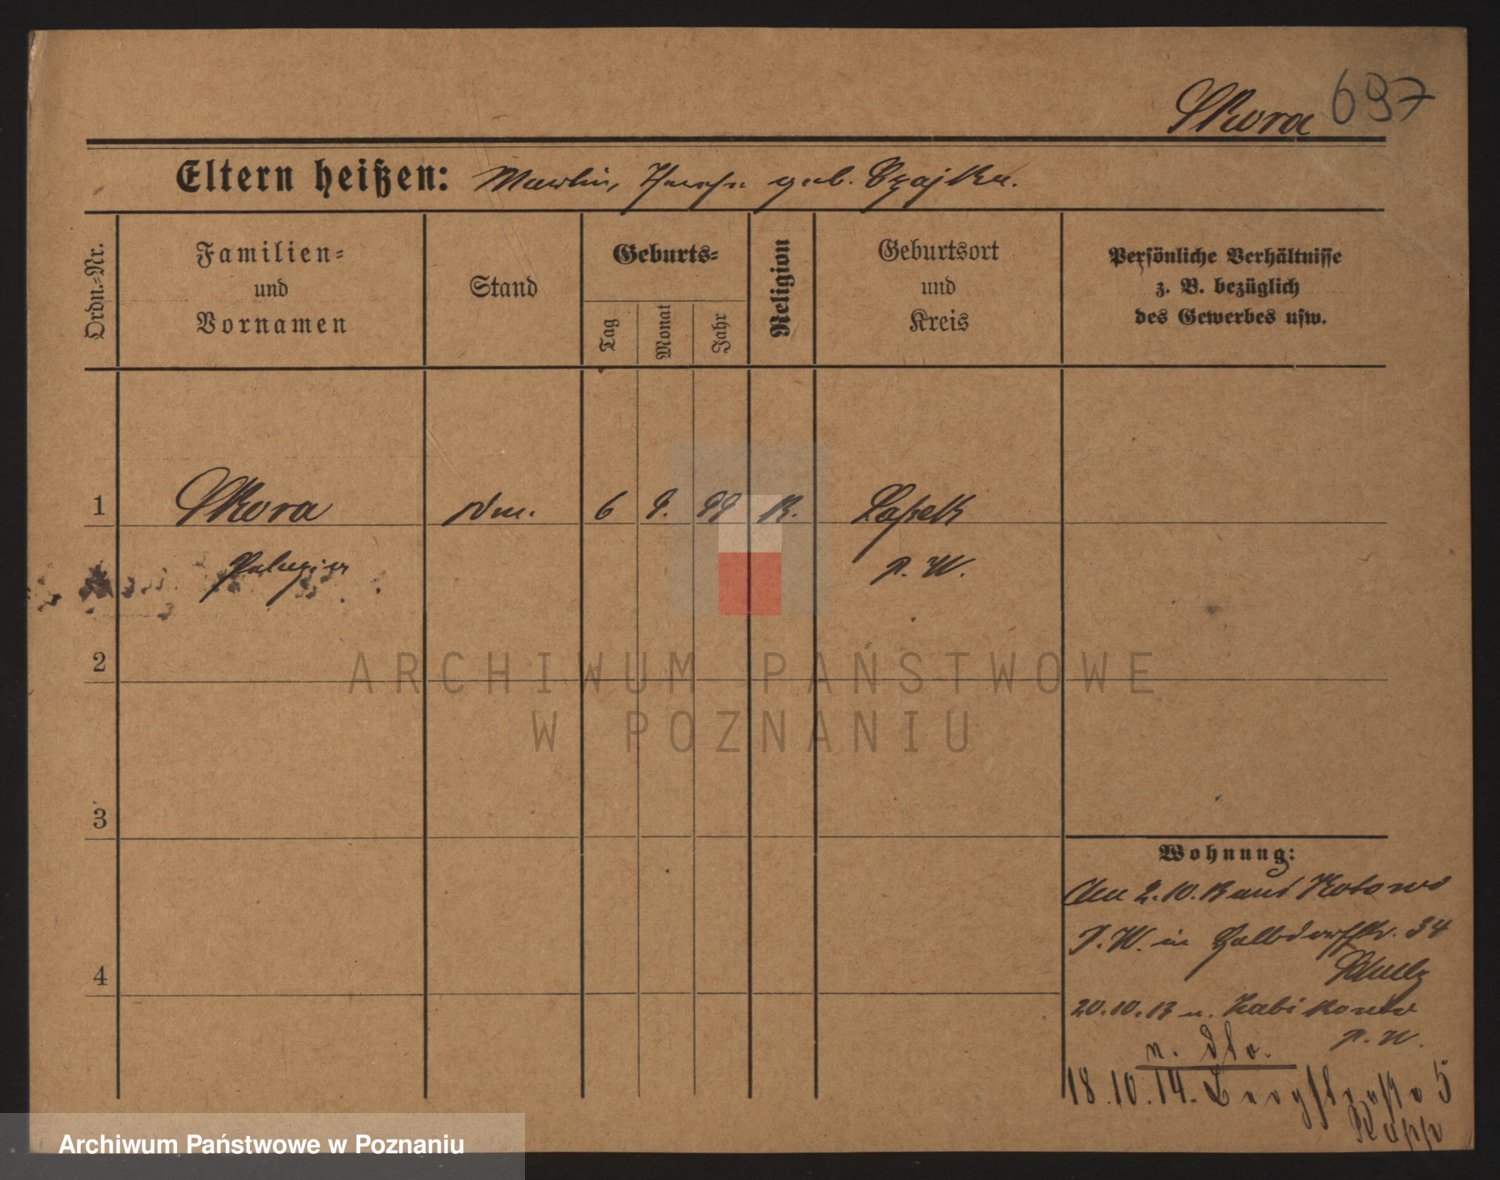 Skora 697
Eltern heißen: geb. Czajka.
Ordn.-Nr.
Familien-
und
Vornamen
Stand
Geburts-
Tag
Monat
Jahr
Religion
Geburtsort
und
Kreis
Persönliche Verhältnisse
z. B. bezüglich
des Gewerbes usw.
1 Skora 6 9. 99 K. Lassek
P. W.
2
3
4
Wohnung:
2. 10. 13 aus Kotowo
P. W. in 34
20. 10. 13 n. Zabikowo
P. W.
n. dto.
18. 10. 14. Bergstraße 5
Rapp
ARCHIWUM PAŃSTWOWE
W POZNANIU
Archiwum Państwowe w Poznaniu